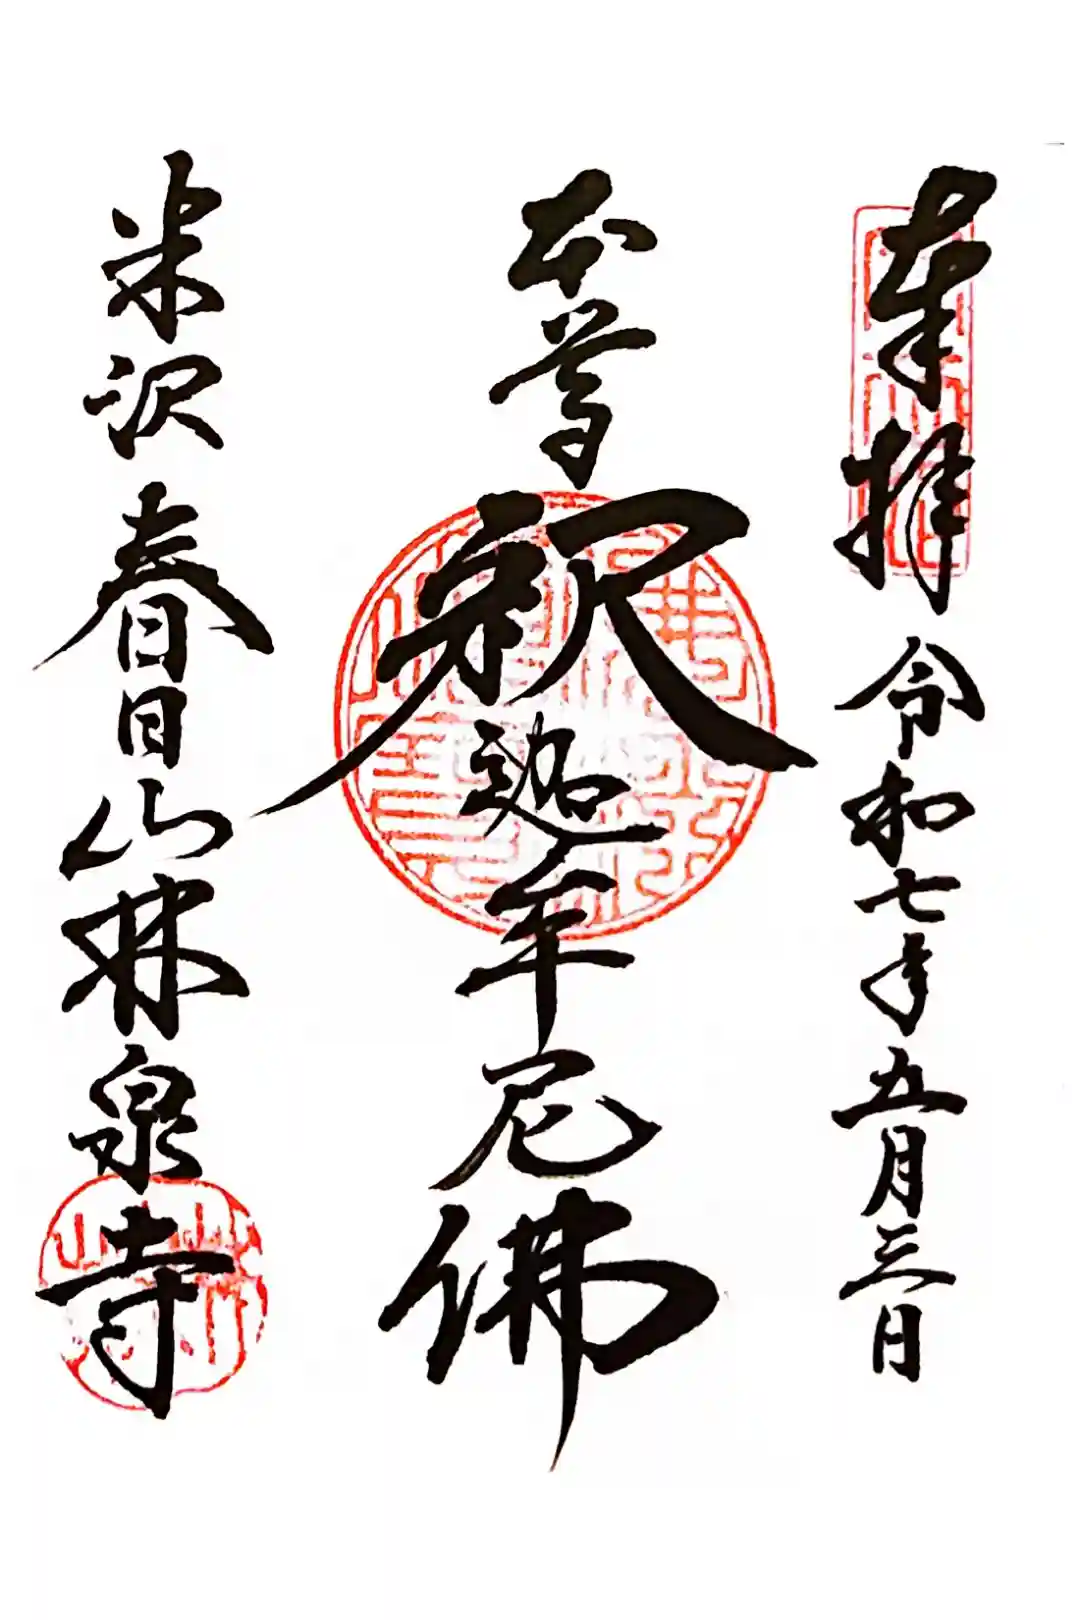 奉拝 令和七年五月三日
本尊 釈迦牟尼佛
米沢 春日山林泉寺